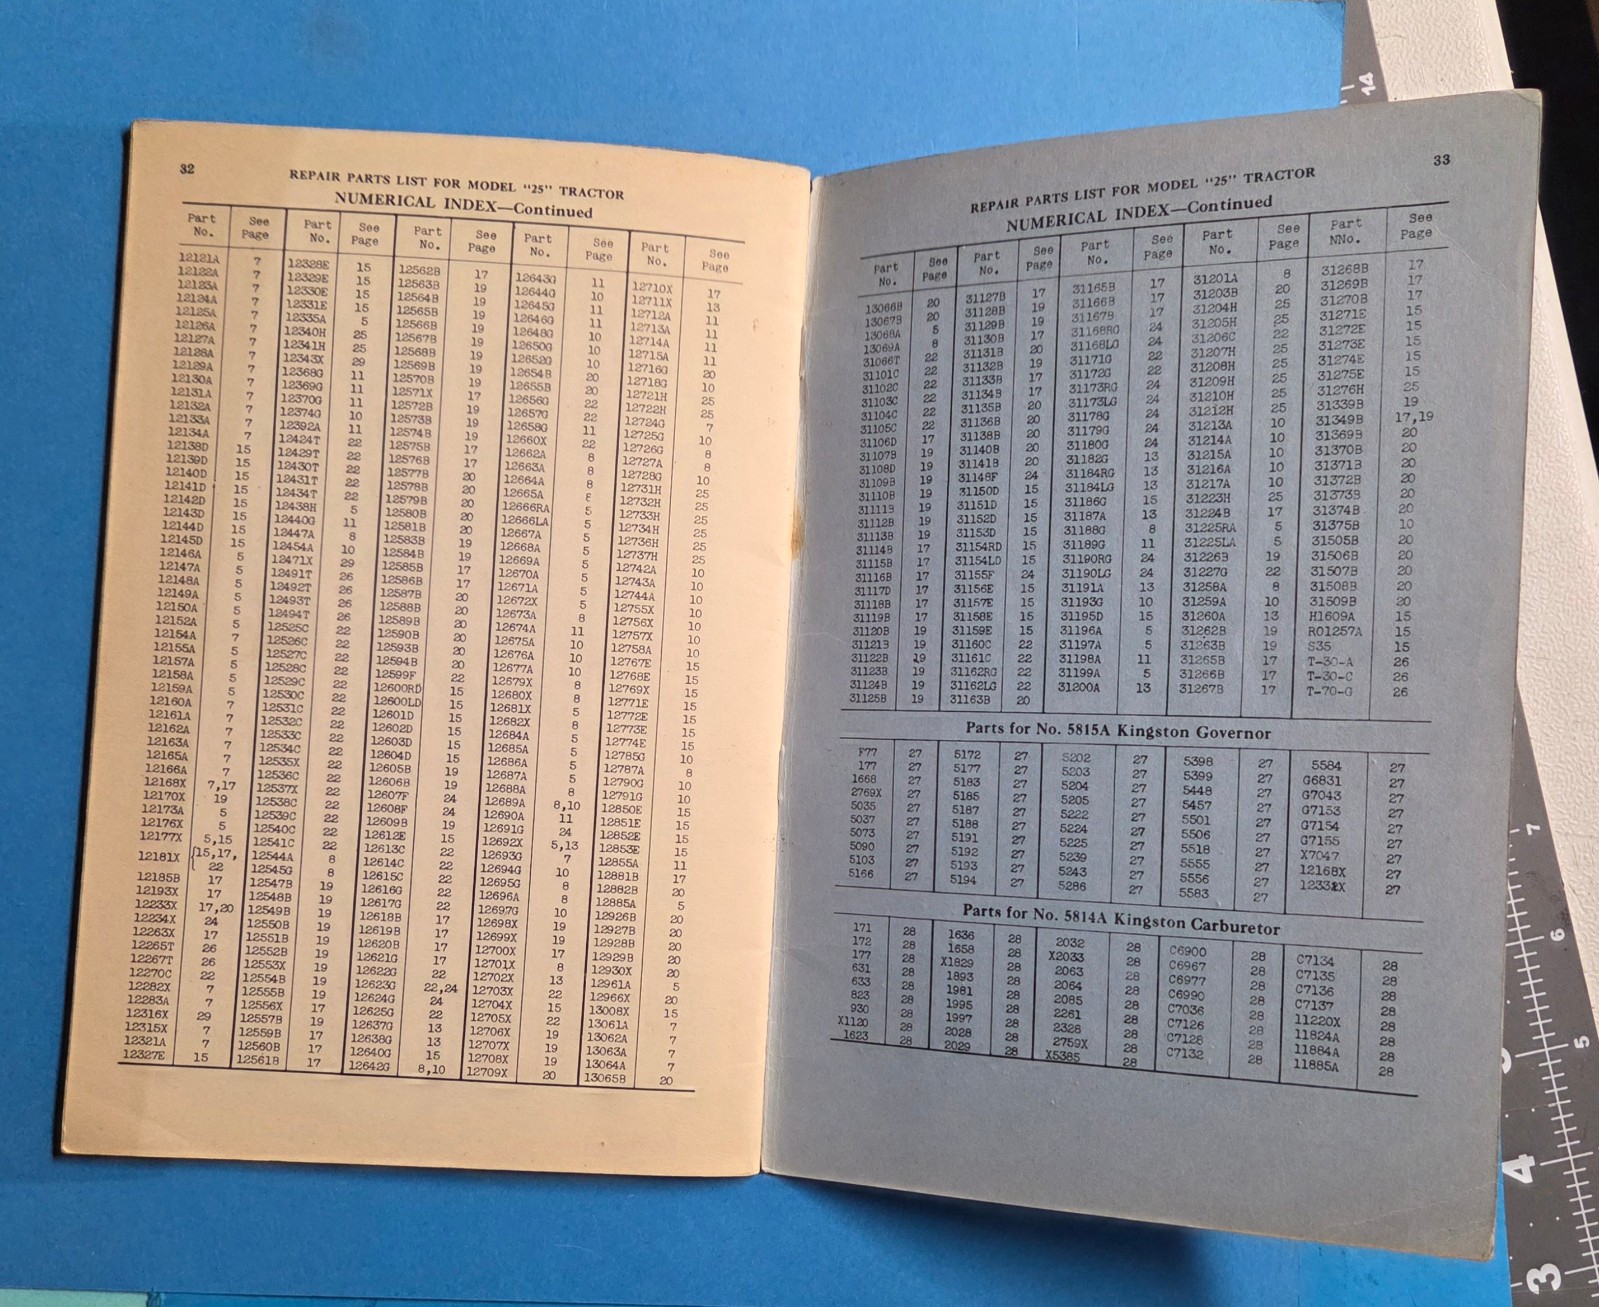 32
REPAIR PARTS LIST FOR MODEL "25" TRACTOR
NUMERICAL INDEX—Continued
Part No. See Page
12121A 7
12122A 7
12123A 7
12124A 7
12125A 7
12126A 7
12127A 7
12128A 7
12129A 7
12130A 7
12131A 7
12132A 7
12133A 7
12134A 7
12138D 15
12139D 15
12140D 15
12141D 15
12142D 15
12143D 15
12144D 15
12145D 15
12146A 5
12147A 5
12148A 5
12149A 5
12150A 5
12152A 5
12154A 7
12155A 5
12157A 5
12158A 5
12159A 5
12160A 7
12161A 7
12162A 7
12163A 7
12165A 7
12166A 7
12168X 7,17
12170X 19
12173A 5
12176X 5
12177X 5,15
12181X {15,17,
22
12185B 17
12193X 17
12233X 17,20
12234X 24
12263X 17
12265T 26
12267T 26
12270C 22
12282X 7
12283A 7
12316X 29
12315X 7
12321A 7
12327E 15
Part No. See Page
12328E 15
12329E 15
12330E 15
12331E 15
12335A 5
12340H 25
12341H 25
12343X 29
12368G 11
12369G 11
12370G 11
12374G 10
12392A 11
12424T 22
12429T 22
12430T 22
12431T 22
12434T 22
12438H 5
12440G 11
12447A 8
12454A 10
12471X 29
12491T 26
12492T 26
12493T 26
12494T 26
12525C 22
12526C 22
12527C 22
12528C 22
12529C 22
12530C 22
12531C 22
12532C 22
12533C 22
12534C 22
12535X 22
12536C 22
12537X 22
12538C 22
12539C 22
12540C 22
12541C 22
12544A 8
12545G 8
12547B 19
12548B 19
12549B 19
12550B 19
12551B 19
12552B 19
12553X 19
12554B 19
12555B 17
12556X 17
12557B 19
12559B 17
12560B 17
12561B 17
Part No. See Page
12562B 17
12563B 19
12564B 19
12565B 19
12566B 19
12567B 19
12568B 19
12569B 19
12570B 19
12571X 17
12572B 19
12573B 19
12574B 19
12575B 17
12576B 17
12577B 20
12578B 20
12579B 20
12580B 20
12581B 20
12583B 19
12584B 19
12585B 17
12586B 17
12587B 20
12588B 20
12589B 20
12590B 20
12593B 20
12594B 20
12599F 22
12600RD 15
12600LD 15
12601D 15
12602D 15
12603D 15
12604D 15
12605B 19
12606B 19
12607F 24
12608F 24
12609B 19
12612E 15
12613C 22
12614C 22
12615C 22
12616G 22
12617G 22
12618B 17
12619B 17
12620B 17
12621G 17
12622G 22
12623G 22,24
12624G 24
12625G 22
12637G 13
12638G 13
12640G 15
12642G 8,10
Part No. See Page
12643G 11
12644G 10
12645G 11
12646G 11
12648G 10
12650G 10
12652G 10
12654B 20
12655B 20
12656G 22
12657G 22
12658G 11
12660X 22
12662A 8
12663A 8
12664A 8
12665A
12666RA 5
12666LA 5
12667A 5
12668A 5
12669A 5
12670A 5
12671A 5
12672X 5
12673A 8
12674A 11
12675A 10
12676A 10
12677A 10
12679X 8
12680X 8
12681X 5
12682X 8
12684A 5
12685A 5
12686A 5
12687A 5
12688A 8
12689A 8,10
12690A 11
12691G 24
12692X 5,13
12693G 7
12694G 10
12695G 8
12696A 8
12697G 10
12698X 19
12699X 19
12700X 17
12701X 8
12702X 13
12703X 22
12704X 15
12705X 22
12706X 19
12707X 19
12708X 19
12709X 20
Part No. See Page
12710X 17
12711X 13
12712A 11
12713A 11
12714A 11
12715A 11
12716G 20
12718G 10
12721H 25
12722H 25
12724G 7
12725G 10
12726G 8
12727A 8
12728G 10
12731H 25
12732H 25
12733H 25
12734H 25
12736H 25
12737H 25
12742A 10
12743A 10
12744A 10
12755X 10
12756X 10
12757X 10
12758A 10
12767E 15
12768E 15
12769X 15
12771E 15
12772E 15
12773E 15
12774E 15
12785G 10
12787A 8
12790G 10
12791G 10
12850E 15
12851E 15
12852E 15
12853E 15
12855A 11
12881B 17
12882B 20
12885A 5
12926B 20
12927B 20
12928B 20
12929B 20
12930X 20
12961A 5
12966X 20
13008X 15
13061A 7
13062A 7
13063A 7
13064A 7
13065B 20
33
REPAIR PARTS LIST FOR MODEL "25" TRACTOR
NUMERICAL INDEX—Continued
Part No. See Page
13066B 20
13067B 20
13068A 5
13069A 8
31066T 22
31101C 22
31102C 22
31103C 22
31104C 22
31105C 22
31106D 17
31107B 19
31108D 19
31109B 19
31110B 19
31111B 19
31112B 19
31113B 19
31114B 17
31115B 17
31116B 17
31117D 17
31118B 17
31119B 17
31120B 19
31121B 19
31122B 19
31123B 19
31124B 19
31125B 19
Part No. See Page
31127B 17
31128B 19
31129B 19
31130B 17
31131B 20
31132B 19
31133B 17
31134B 17
31135B 20
31136B 20
31138B 20
31140B 20
31141B 20
31148F 24
31150D 15
31151D 15
31152D 15
31153D 15
31154RD 15
31154LD 15
31155F 24
31156E 15
31157E 15
31158E 15
31159E 15
31160C 22
31161C 22
31162RG 22
31162LG 22
31163B 20
Part No. See Page
31165B 17
31166B 17
31167B 17
31168RG 24
31168LG 24
31171G 22
31172G 22
31173RG 24
31173LG 24
31178G 24
31179G 24
31180G 24
31182G 13
31184RG 13
31184LG 13
31186G 15
31187A 13
31188G 8
31189G 11
31190RG 24
31190LG 24
31191A 13
31193G 10
31195D 15
31196A 5
31197A 5
31198A 11
31199A 5
31200A 13
Part No. See Page
31201A 8
31203B 20
31204H 25
31205H 25
31206C 22
31207H 25
31208H 25
31209H 25
31210H 25
31212H 25
31213A 10
31214A 10
31215A 10
31216A 10
31217A 10
31223H 25
31224B 17
31225RA 5
31225LA 5
31226B 19
31227G 22
31258A 8
31259A 10
31260A 13
31262B 19
31263B 19
31265B 17
31266B 17
31267B 17
Part NNo. See Page
31268B 17
31269B 17
31270B 17
31271E 15
31272E 15
31273E 15
31274E 15
31275E 15
31276H 25
31339B 19
31349B 17,19
31369B 20
31370B 20
31371B 20
31372B 20
31373B 20
31374B 20
31375B 10
31505B 20
31506B 20
31507B 20
31508B 20
31509B 20
H1609A 15
R01257A 15
S35 15
T-30-A 26
T-30-C 26
T-70-G 26
Parts for No. 5815A Kingston Governor
F77 27 5172 27 5202 27 5398 27 5584 27
177 27 5177 27 5203 27 5399 27 G6831 27
1668 27 5183 27 5204 27 5448 27 G7043 27
2769X 27 5185 27 5205 27 5457 27 G7153 27
5035 27 5187 27 5222 27 5501 27 G7154 27
5037 27 5188 27 5224 27 5506 27 G7155 27
5073 27 5191 27 5225 27 5518 27 X7047 27
5090 27 5192 27 5239 27 5555 27 12168X 27
5103 27 5193 27 5243 27 5556 27 27
5166 27 5194 27 5286 27 5583 27
Parts for No. 5814A Kingston Carburetor
171 28 1636 28 2032 28 C6900 28 C7134 28
172 28 1658 28 X2033 28 C6967 28 C7135 28
177 28 X1829 28 2063 28 C6977 28 C7136 28
631 28 1893 28 2064 28 C6990 28 C7137 28
633 28 1981 28 2085 28 C7036 28 11220X 28
823 28 1995 28 2261 28 C7126 28 11824A 28
930 28 1997 28 2328 28 C7128 28 11884A 28
X1120 28 2028 28 2759X 28 C7132 28 11885A 28
1623 28 2029 28 X5385 28
14
7
6
5
4
3